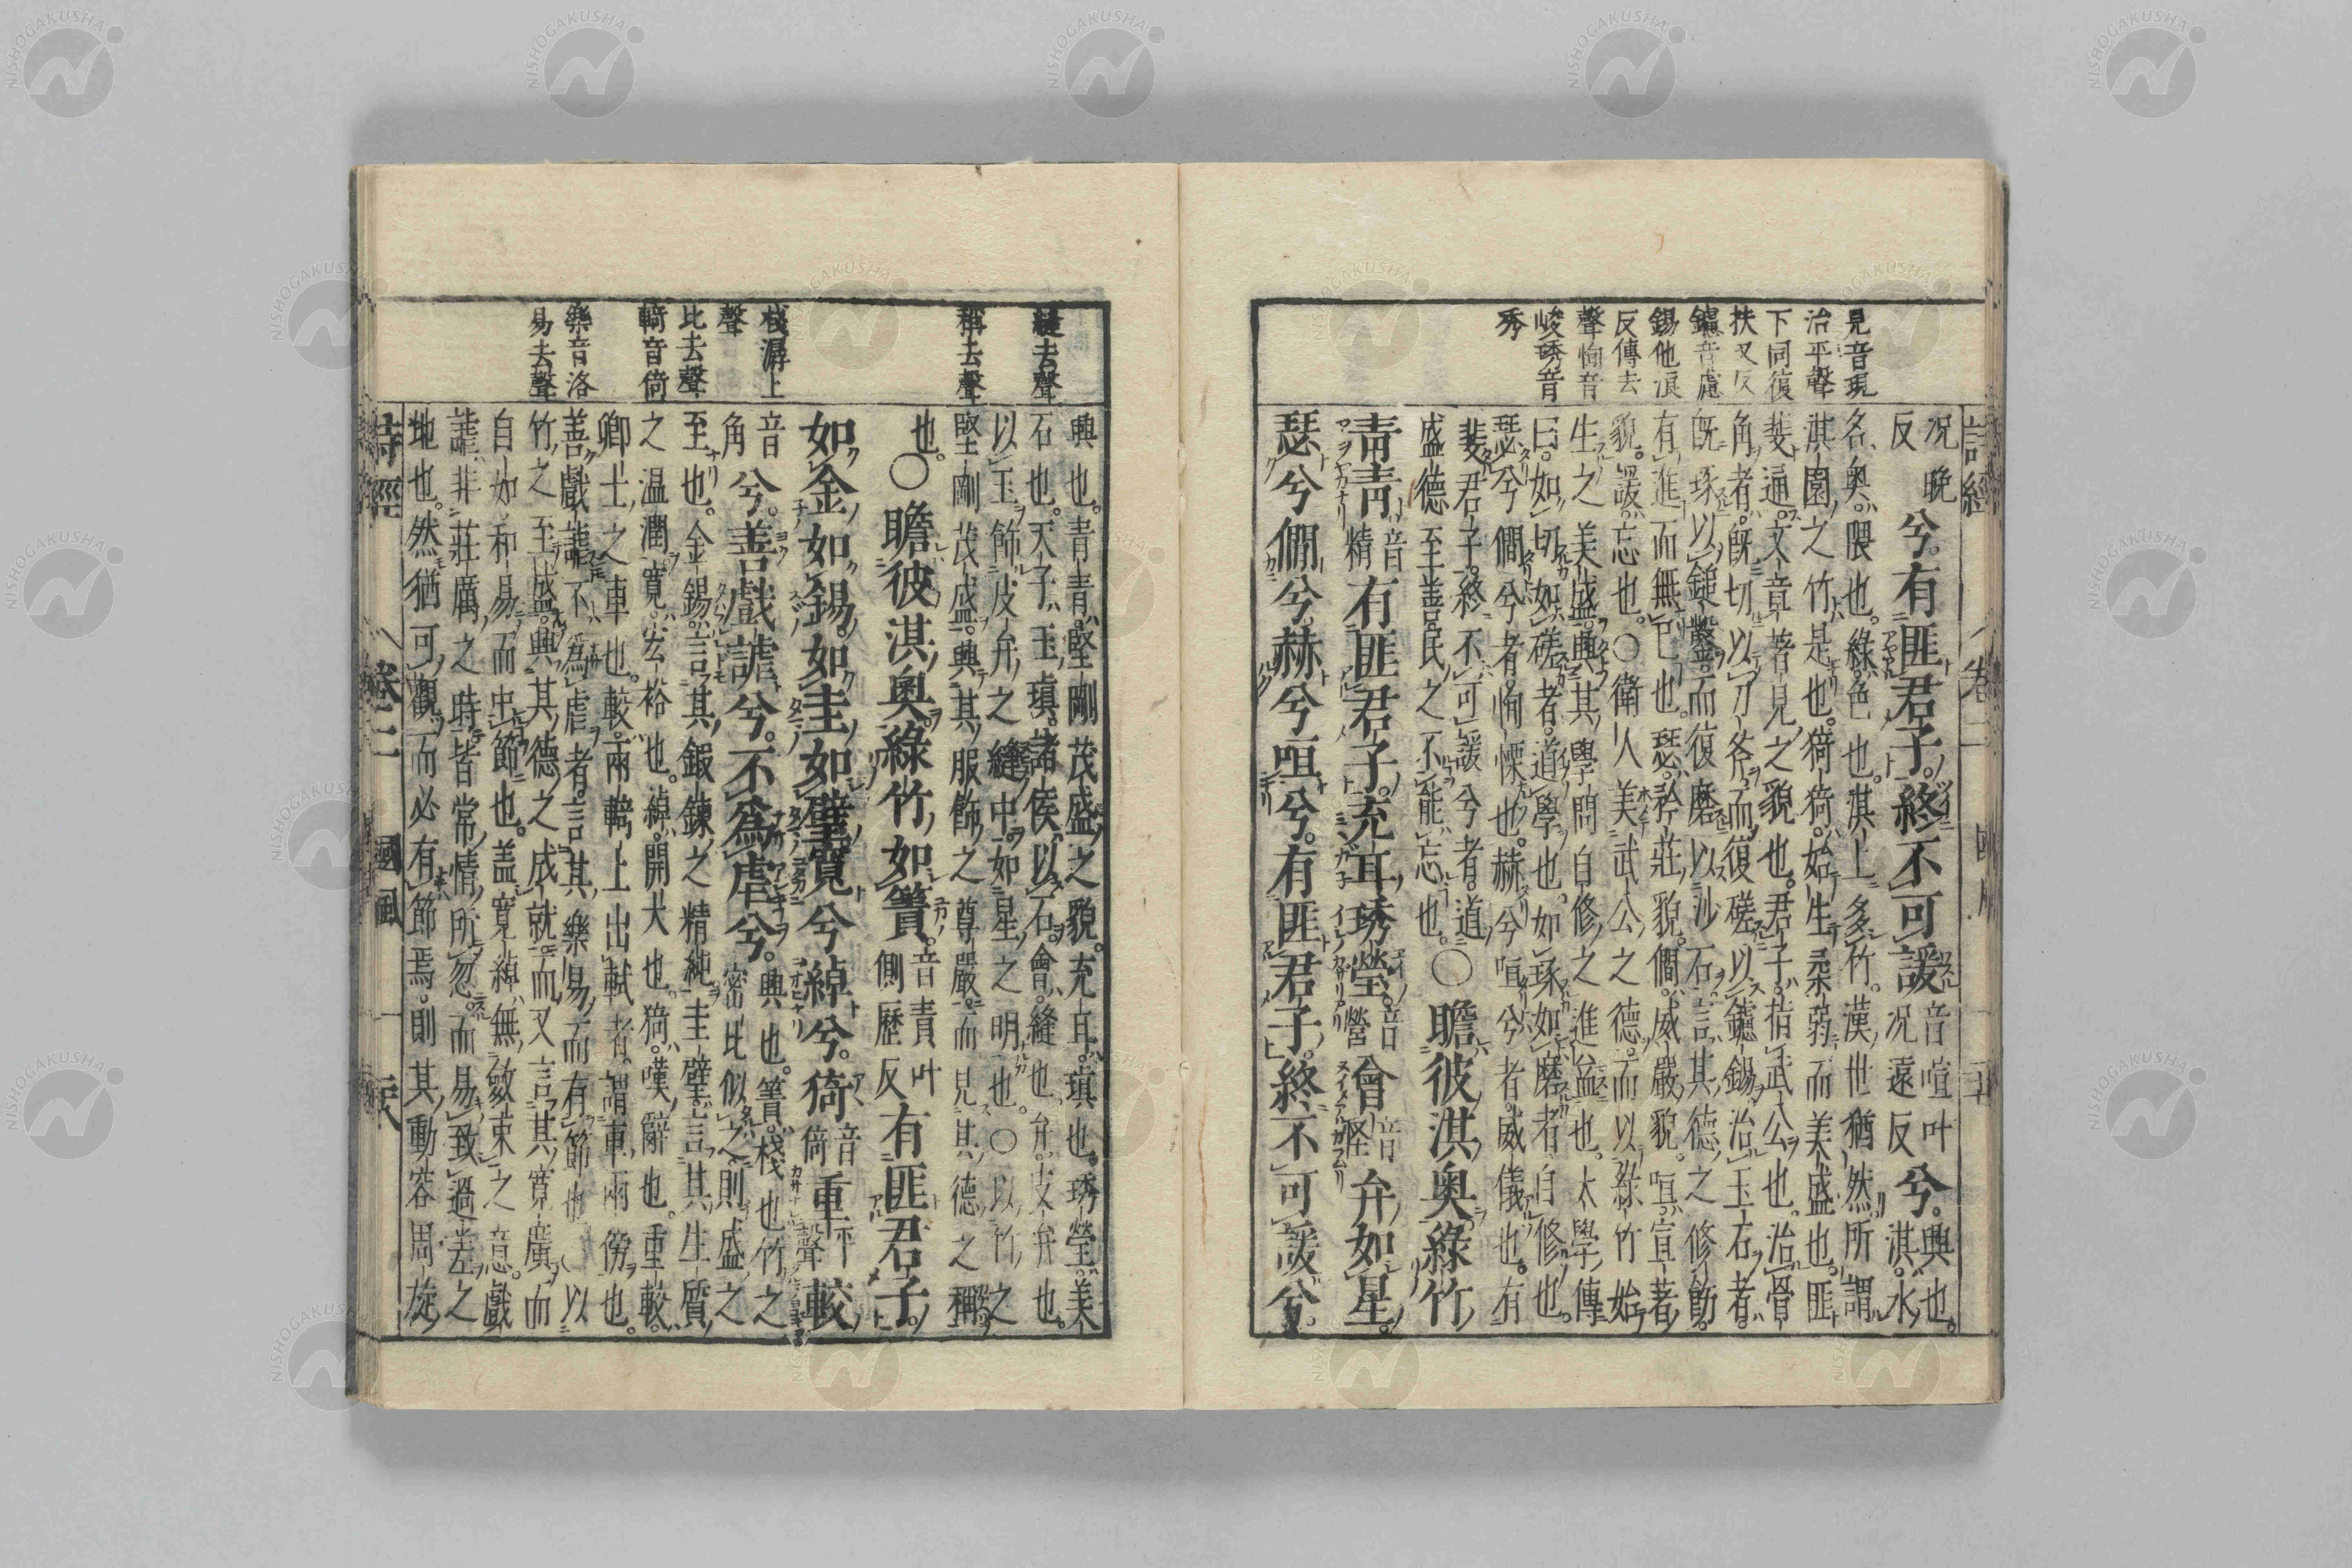 見音現
治平聲
下同復
扶又反
鑢音慮
錫他浪
反傳去
聲恂音
峻琇音
秀
況晚
反
兮。有匪君子。終不可諼
音喧叶
況遠反
兮。
興也。
淇。水
名。奧。隈也。綠。色也。淇上多竹。漢世猶然。所謂
淇園之竹是也。猗猗。始生柔弱而美盛也。匪。
斐通。文章著見之貌也。君子。指武公也。治骨
角者。既切以刀斧。而復磋以鑢錫。治玉石者。
既琢以鎚鑿。而復磨以沙石。言其德之修飭。
有進而無已也。瑟。矜莊貌。僩。威嚴貌。咺。宣著
貌。諼。忘也。○衛人美武公之德。而以綠竹始
生之美盛。興其學問自修之進益也。大學傳
曰。如切如磋者。道學也。如琢如磨者。自修也。
瑟兮僩兮者。恂慄也。赫兮咺兮者。威儀也。有
斐君子。終不可諼兮者。道
盛德至善民之不能忘也。
○瞻彼淇奧。綠竹
青青
音
精
有匪君子。充耳琇瑩。
音
營
會
音
怪
弁如星。
瑟兮僩兮。赫兮咺兮。有匪君子。終不可諼兮。
縫去聲
稱去聲
棧潺上
聲
比去聲
輢音倚
樂音洛
易去聲
興也。青青。堅剛茂盛之貌。充耳。瑱也。琇瑩。美
石也。天子玉瑱。諸侯以石。會。縫也。弁。皮弁也。
以玉飾皮弁之縫中。如星之明也。○以竹之
堅剛茂盛。興其服飾之尊嚴。而見其德之稱
也。
○瞻彼淇奧。綠竹如簀。
音責叶
側歷反
有匪君子。
如金如錫。如圭如璧。寬兮綽兮。猗
音
倚
重
平
聲
較
音
角
兮。善戲謔兮。不為虐兮。
興也。簀。棧也。竹之
密比似之。則盛之
至也。金錫。言其鍛鍊之精純。圭璧。言其生質
之溫潤。寬。宏裕也。綽。開大也。猗。嘆辭也。重較。
卿士之車也。較。兩輢上出軾者。謂車兩傍也。
善戲謔不為虐者。言其樂易而有節也。○以
竹之至盛。興其德之成就。而又言其寬廣而
自如。和易而中節也。蓋寬綽。無斂束之意。戲
謔。非莊厲之時。皆常情所忽。而易致過差之
地也。然猶可觀。而必有節焉。則其動容周旋
詩經
卷二
國風